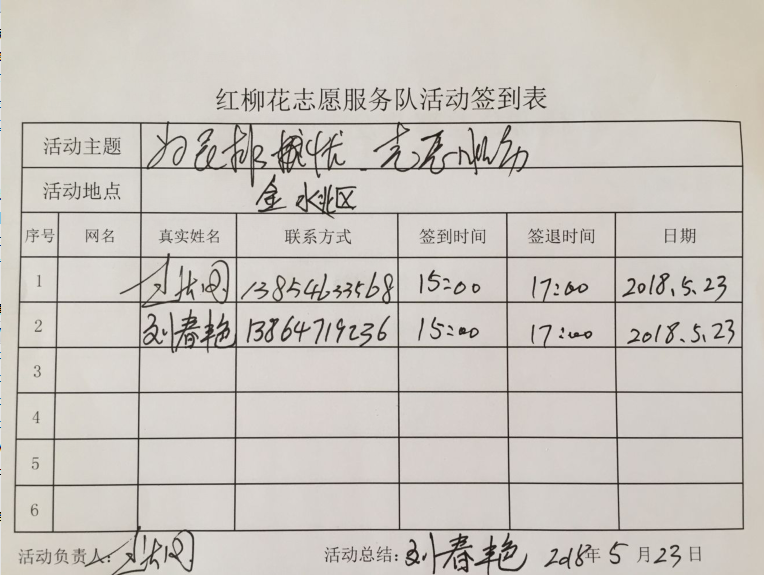 红柳花志愿服务队活动签到表
活动主题 为民排忧 志愿
活动地点 金水北区
序号 网名 真实姓名 联系方式 签到时间 签退时间 日期
1 13854633568 15:00 17:00 2018.5.23
2 刘春艳 13864719236 15:00 17:00 2018.5.23
3
4
5
6
活动负责人: 活动总结: 刘春艳 2018年5月23日